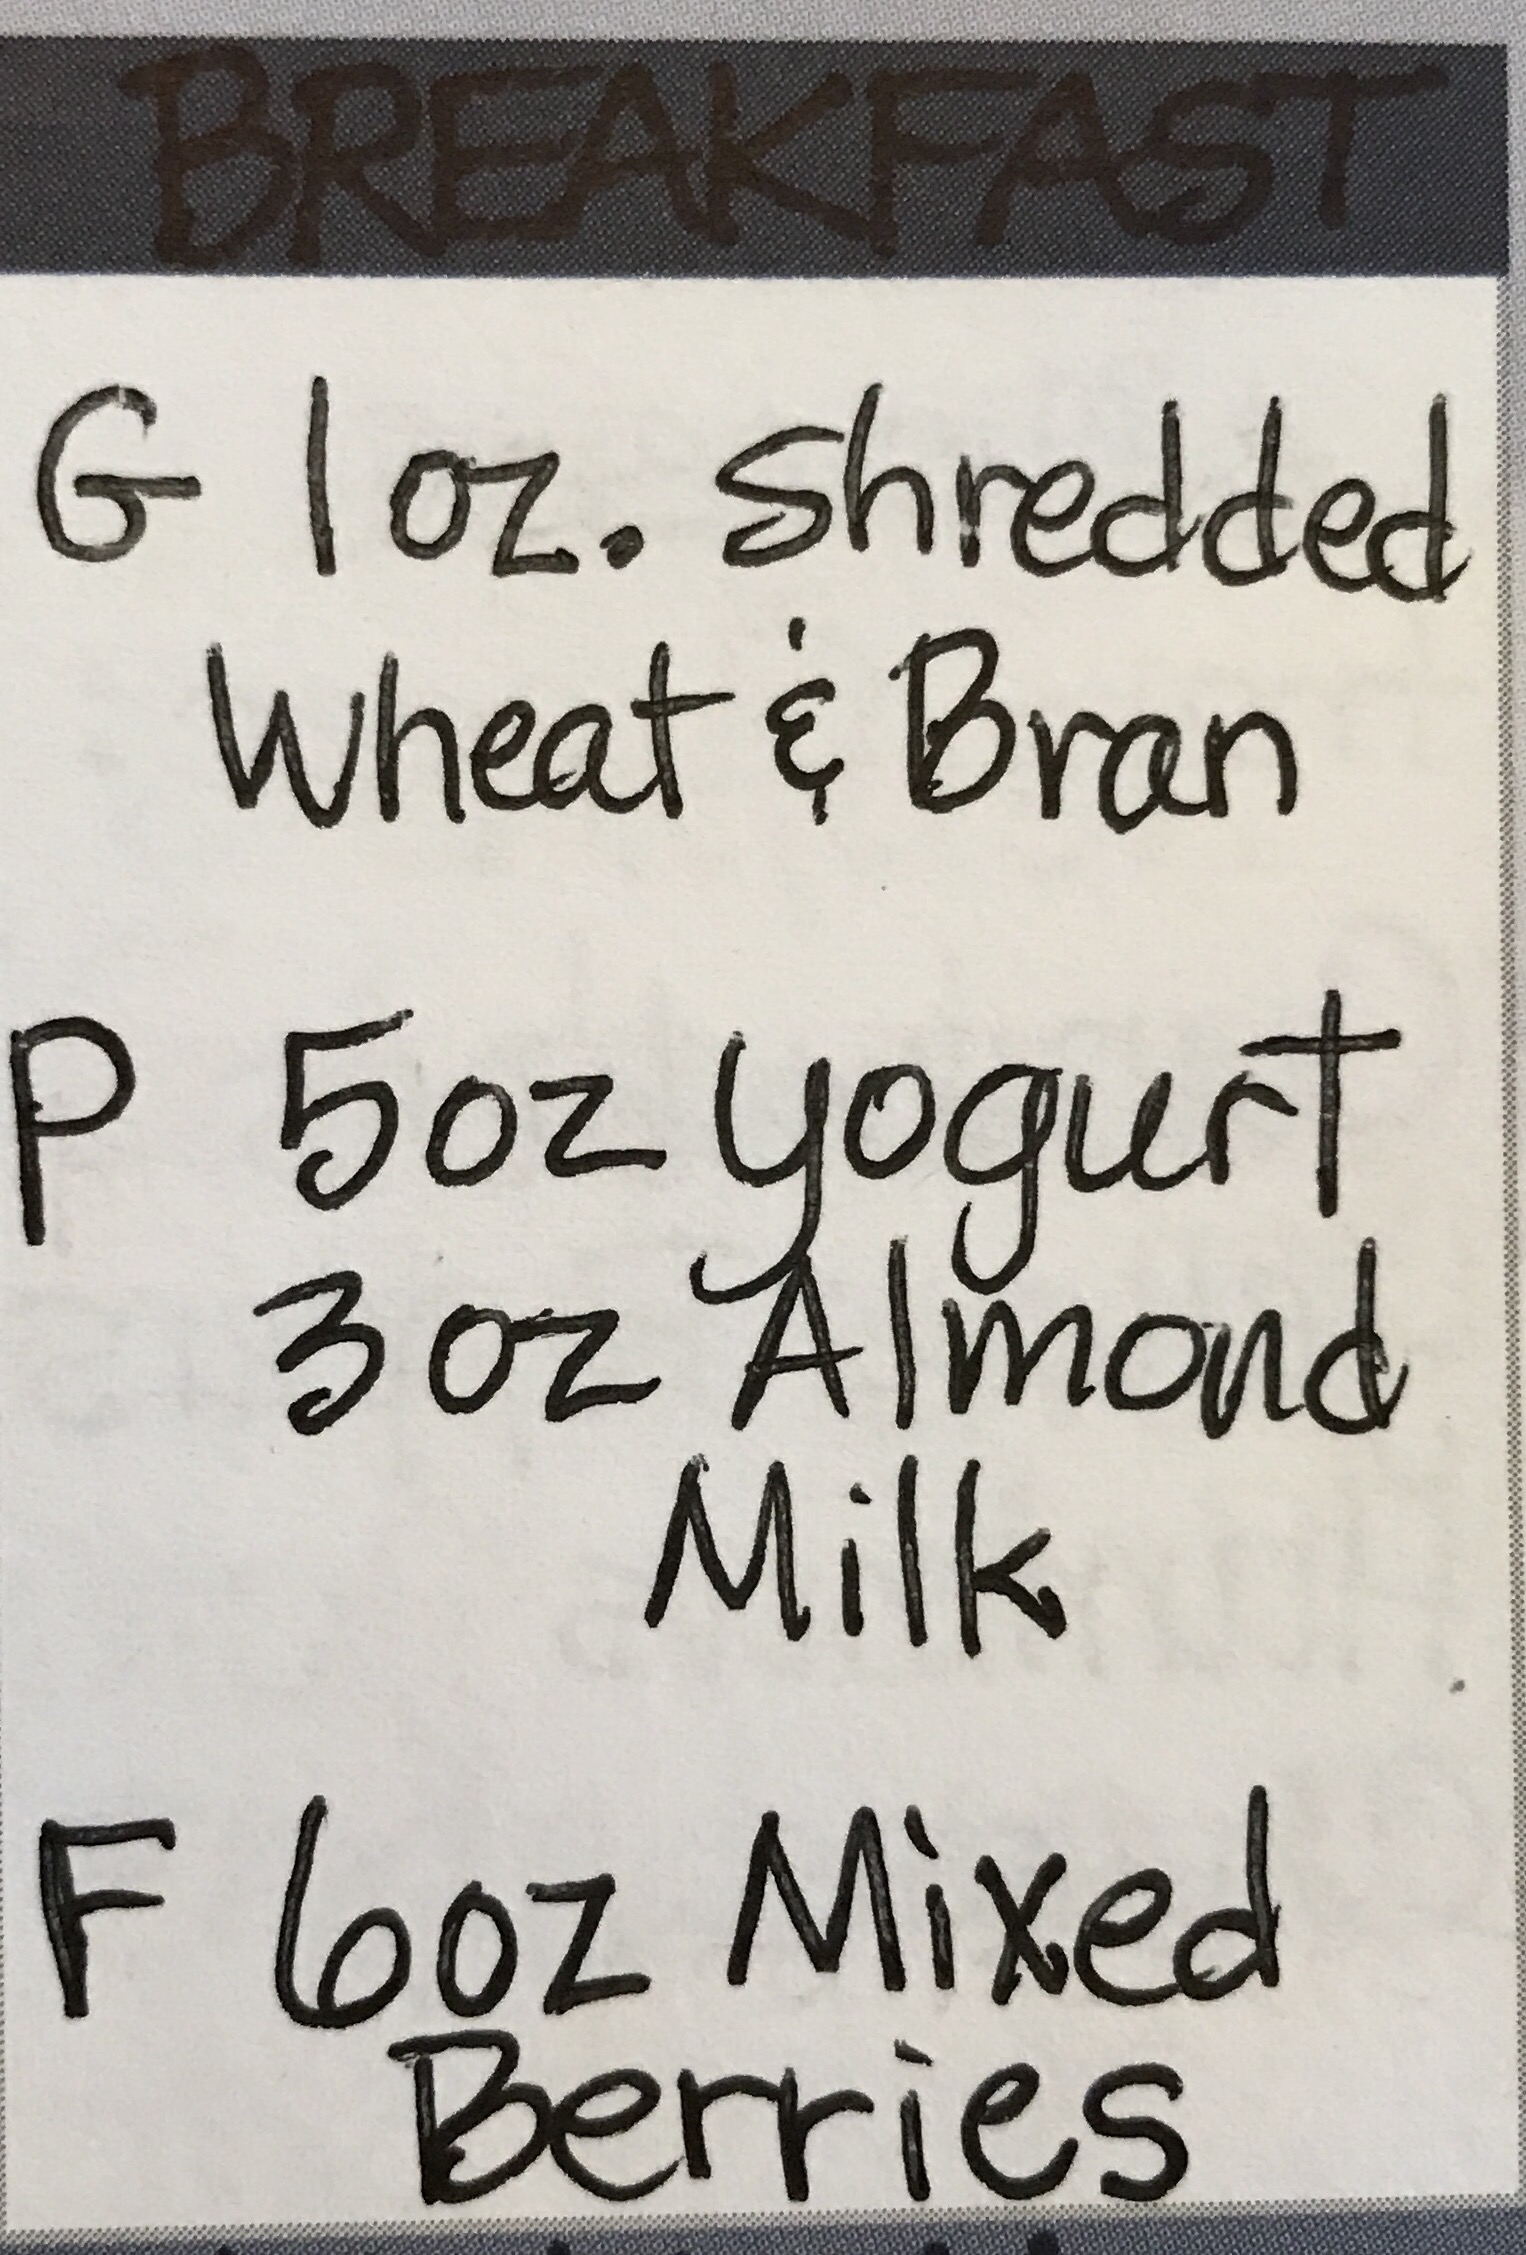 BREAKFAST
G 1 oz. Shredded
Wheat & Bran
P 5oz yogurt
3 oz Almond
Milk
F 6oz Mixed
Berries